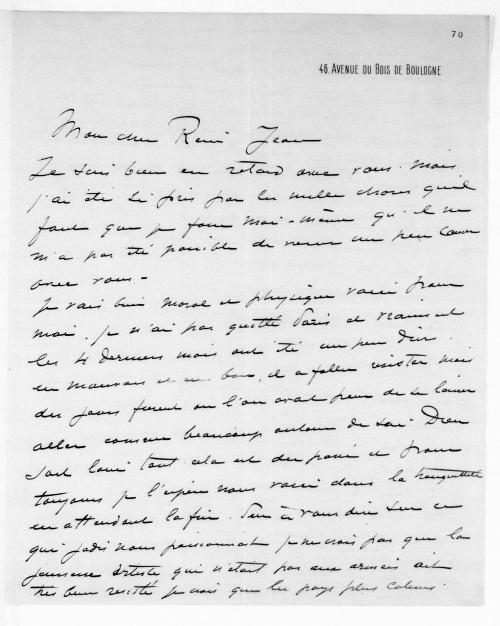 70
46, AVENUE DU BOIS DE BOULOGNE
Mon cher René Jean
Je suis bien en retard avec vous. Mais
j'ai été si pris par les mille choses qu'il
faut que je fasse moi-même qu'il ne
m'a pas été possible de venir un peu causer
avec vous -
Je vais bien moral et physique voici pour
moi. Je n'ai pas quitté Paris et vraiment
les 4 derniers mois ont été un peu durs.
en mauvais et en bon, il a fallu résister mais
des jours furent où l'on avait peur de se laisser
aller comme beaucoup autour de soi. Dieu
soit loué tout cela est du passé et pour
toujours je l'espère nous voici dans la tranquillité
en attendant la fin. Rien à vous dire sur ce
qui jadis nous passionnait je ne crois pas que la
jeunesse artiste qui n'était pas aux armées ait
très bien resisté je crois que les pays plus calmes